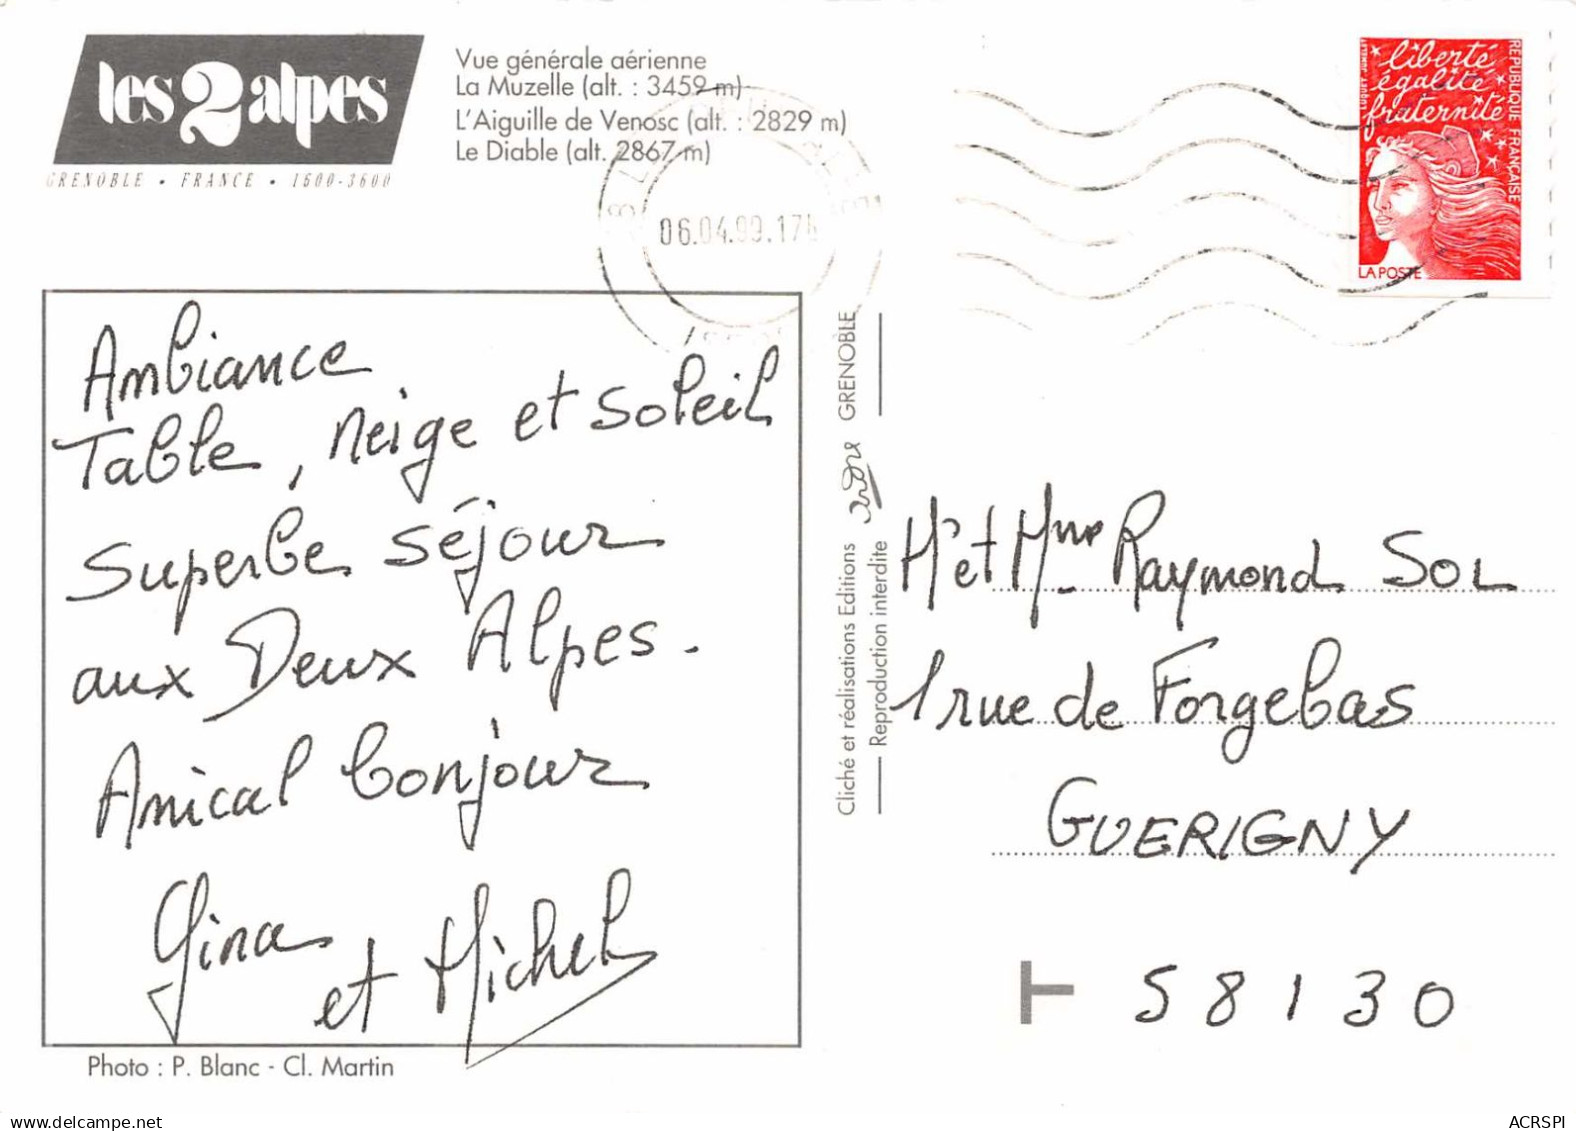 les 2 alpes
GRENOBLE • FRANCE • 1600-3600
Vue générale aérienne
La Muzelle (alt. : 3459 m)
L'Aiguille de Venosc (alt. : 2829 m)
Le Diable (alt. 2867 m)
06.04.99.17h
liberté
égalité
fraternité
RÉPUBLIQUE FRANÇAISE
LA POSTE
Ambiance
Table, neige et soleil
Superbe séjour
aux Deux Alpes.
Amical bonjour
Gina
et Michel
Photo : P. Blanc - Cl. Martin
Cliché et réalisations Editions GRENOBLE
Reproduction interdite
Mr et Mme Raymond SOL
1 rue de Forgebas
GUERIGNY
58130
ACRSPI